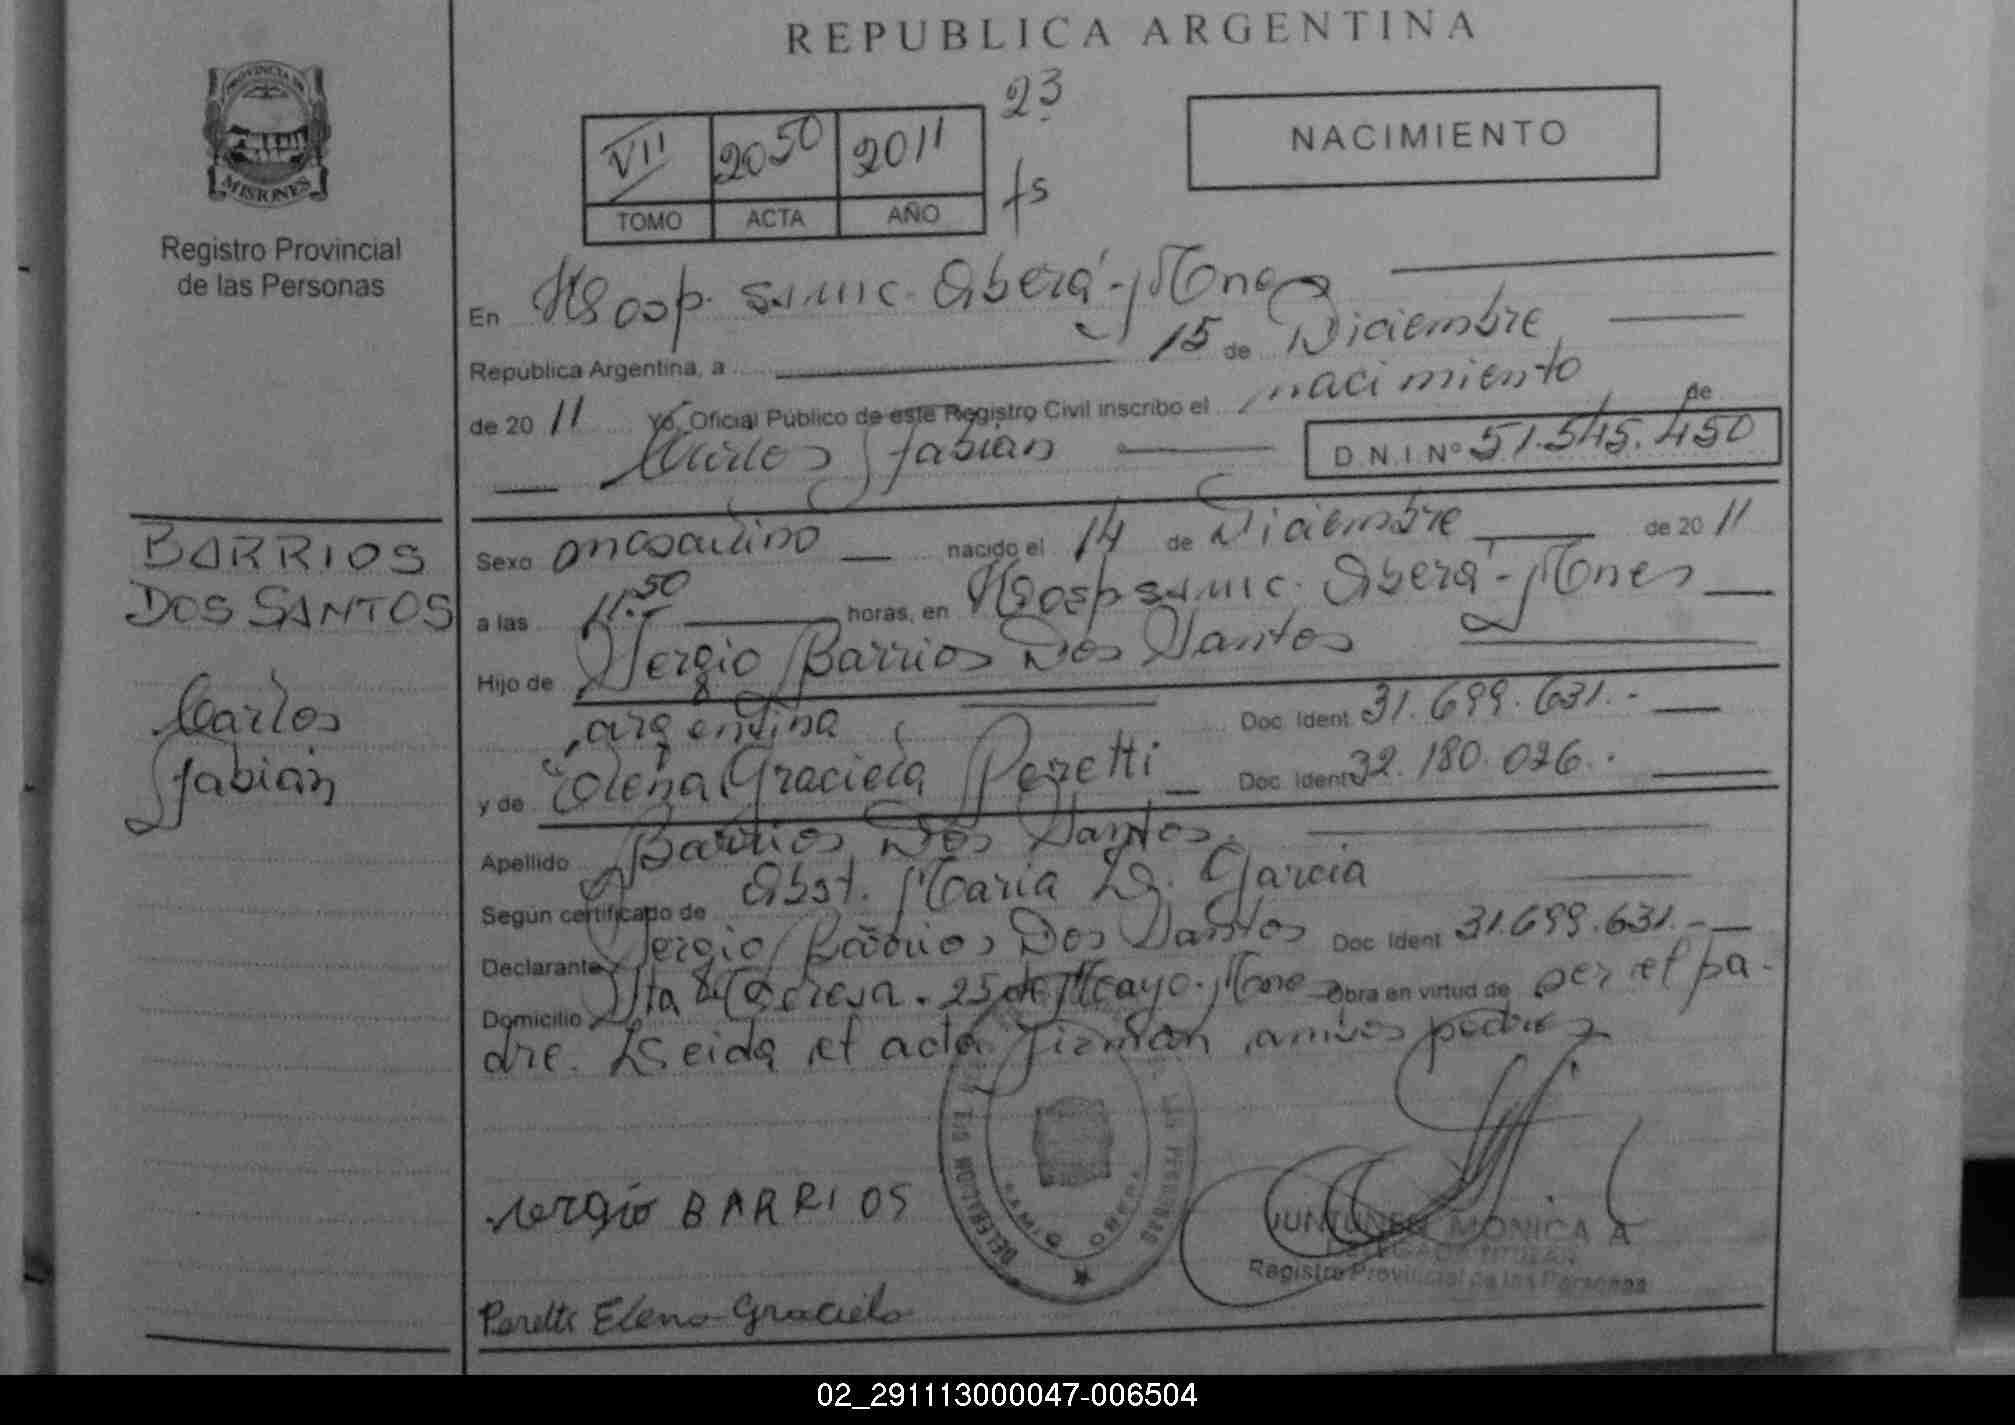 REPUBLICA ARGENTINA
PROVINCIA DE
MISIONES
Registro Provincial
de las Personas
VII 2050 2011
TOMO ACTA AÑO
23
fs
NACIMIENTO
En Hosp. Samic. Oberá - Mnes
República Argentina, a 15 de Diciembre
de 2011 Yo, Oficial Público de este Registro Civil inscribo el nacimiento de
Carlos Fabián D.N.I. Nº 51.545.450
BARRIOS
DOS SANTOS
Carlos
Fabián
Sexo masculino nacido el 14 de Diciembre de 2011
a las 11.50 horas, en Hosp samic. Oberá - Mnes
Hijo de Sergio Barrios Dos Santos
argentina Doc. Ident. 31.699.631.-
y de Elena Graciela Peretti Doc. Ident 32.180.026.
Apellido Barrios Dos Santos.
Según certificado de Obst. Maria L. Garcia
Declarante Sergio Barrios Dos Santos Doc. Ident. 31.699.631.-
Domicilio Sta Teresa. 25 de Mayo. Mnes Obra en virtud de ser el pa-
dre. Leida el acta firman ambos padres
sergio BARRIOS
Peretti Elena Graciela
JUNTUNEN MONICA A
DELEGADA TITULAR
Registro Provincial de las Personas
02_291113000047-006504